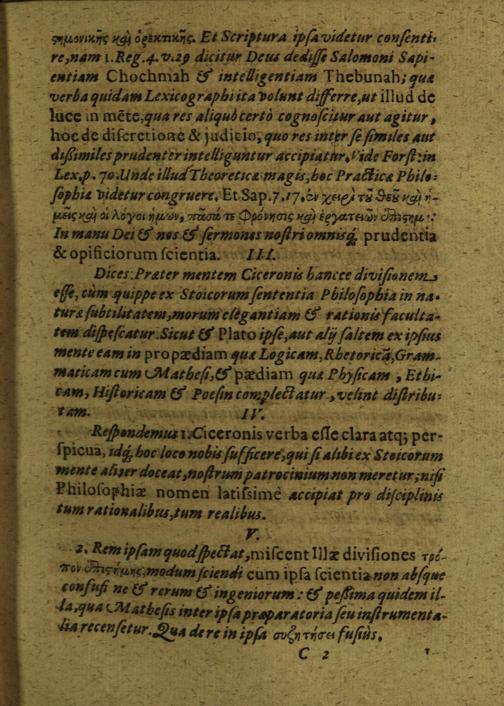 ςημονικῆς καὶ ὀρεκτικῆς. Et Scriptura ipsa videtur consenti-
re, nam 1. Reg. 4. v. 29 dicitur Deus dedisse Salomoni Sapi-
entiam Chochmah & intelligentiam Thebunah; quæ
verba quidam Lexicographi ita volunt differre, ut illud de
luce in mẽte, qua res aliquo certò cognoscitur aut agitur,
hoc de discretione & judicio, quo res inter se similes aut
dißimiles prudenter intelliguntur accipiatur. Vide Forst: in
Lex. p. 70. Unde illud Theoreticæ magis, hoc Practicæ Philo-
sophiæ videtur congruere. Et Sap. 7. 17. ἐν χειρὶ τοῦ θεοῦ καὶ ἡ-
μεῖς καὶ οἱ λόγοι ἡμῶν, πᾶσά τε φρόνησις καὶ ἐργατειῶν ἐπιςημ·:
In manu Dei & nos & sermones nostri omnisq́; prudentia
& opificiorum scientia. III.
Dices: Præter mentem Ciceronis hancce divisionem
esse, cùm quippe ex Stoicorum sententia Philosophia in na-
turæ subtilitatem, morum elegantiam & rationis faculta-
tem dispescatur. Sicut & Plato ipse, aut alij saltem ex ipsius
mente eam in propædiam quæ Logicam, Rhetoricã, Gram-
maticam cum Mathesi, & pædiam quæ Physicam, Ethi-
cam, Historicam & Poesin complectatur, velint distribu-
tam. IV.
Respondemus 1. Ciceronis verba esse clara atq; per-
spicua, idq́; hoc loco nobis sufficere, qui si alibi ex Stoicorum
mente aliter doceat, nostrum patrocinium non meretur; nisi
Philosophiæ nomen latissimè accipiat pro disciplinis
tum rationalibus, tum realibus.
V.
2. Rem ipsam quod spectat, miscent Illæ divisiones τρό-
πον ἐπιςήμης, modum sciendi cum ipsa scientia non absque
confusione & rerum & ingeniorum: & peßima quidem il-
la, quæ Mathesis inter ipsa præparatoria seu instrumenta-
lia recensetur. Qua de re in ipsa συζητήσει fusiùs.
C 2